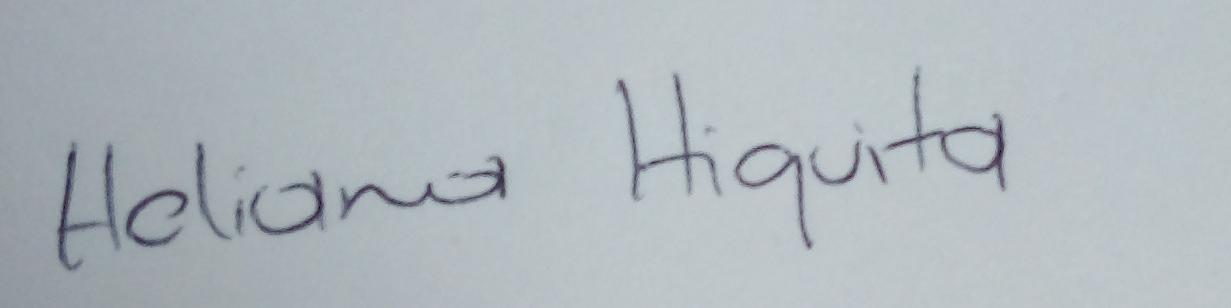 Heliana Hiquita